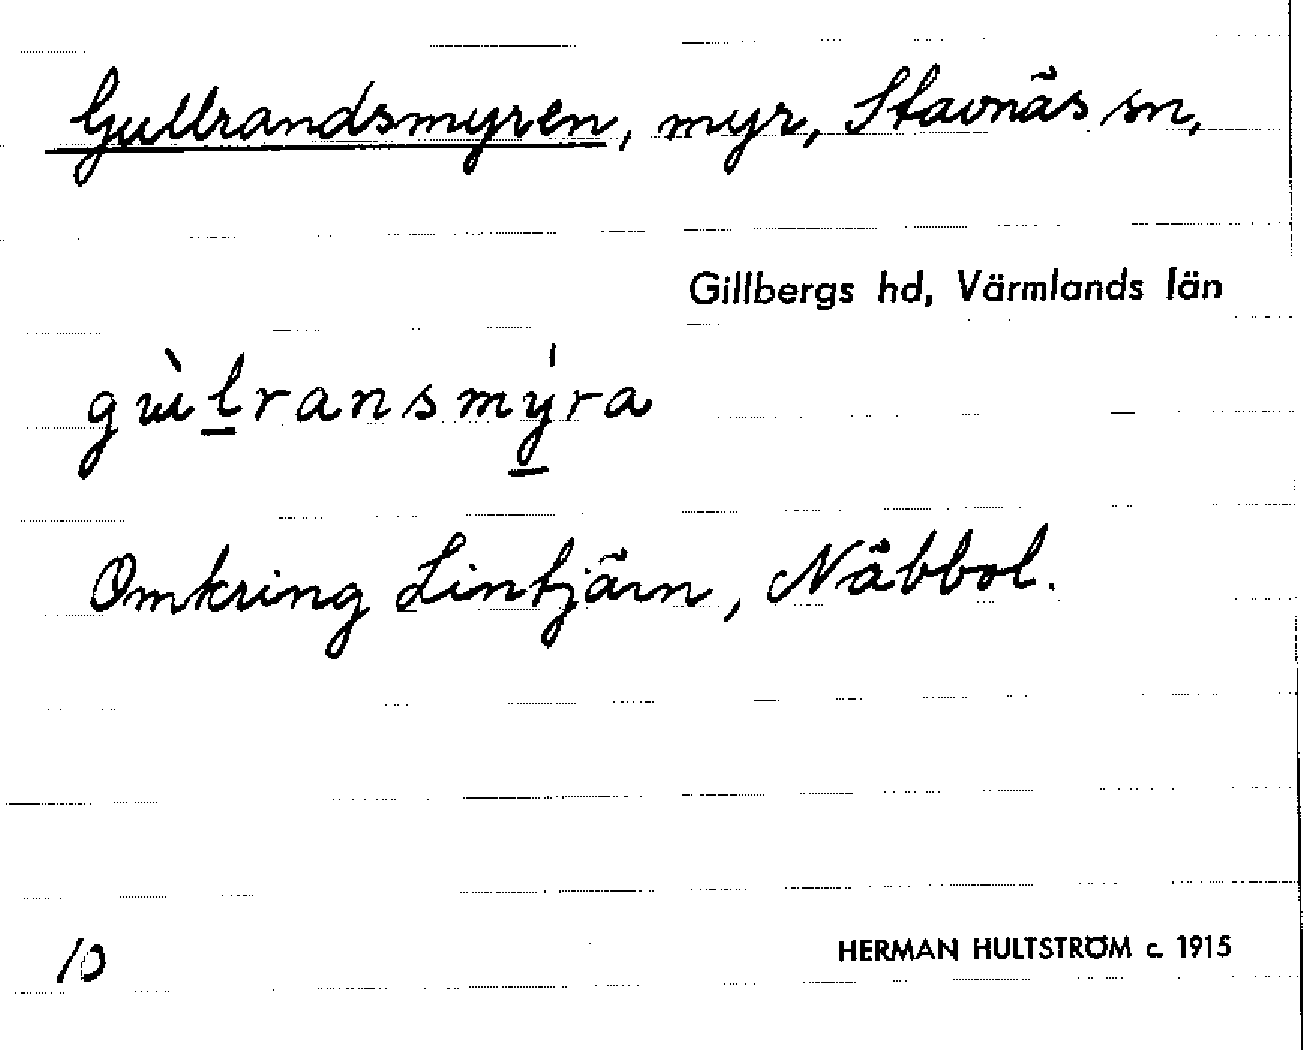 Gullrandsmyren, myr, Stavnäs sn,
Gillbergs hd, Värmlands län
gùlransmýra
Omkring Lintjärn, Näbbol.
10
HERMAN HULTSTRÖM c. 1915